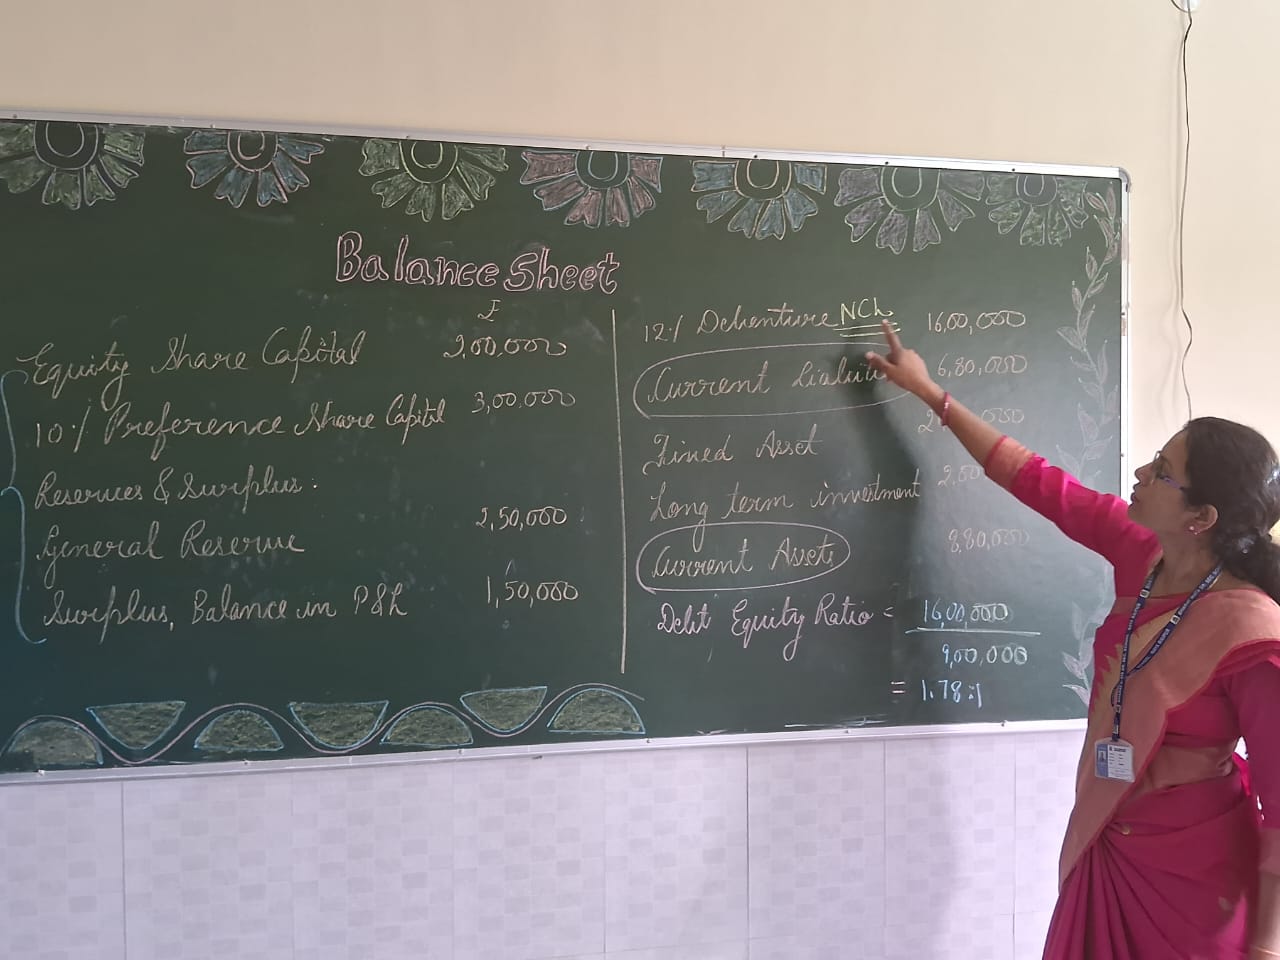 Balance Sheet
₹
Equity Share Capital 2,00,000
10% Preference Share Capital 3,00,000
Reserves & Surplus.
General Reserve 2,50,000
Surplus, Balance in P&L 1,50,000
12% Debenture NCL 16,00,000
Current 6,80,000
Fixed Asset
Long term investment
Current Assets 8,80,000
Debt Equity Ratio = 16,00,000
9,00,000
= 1.78:1